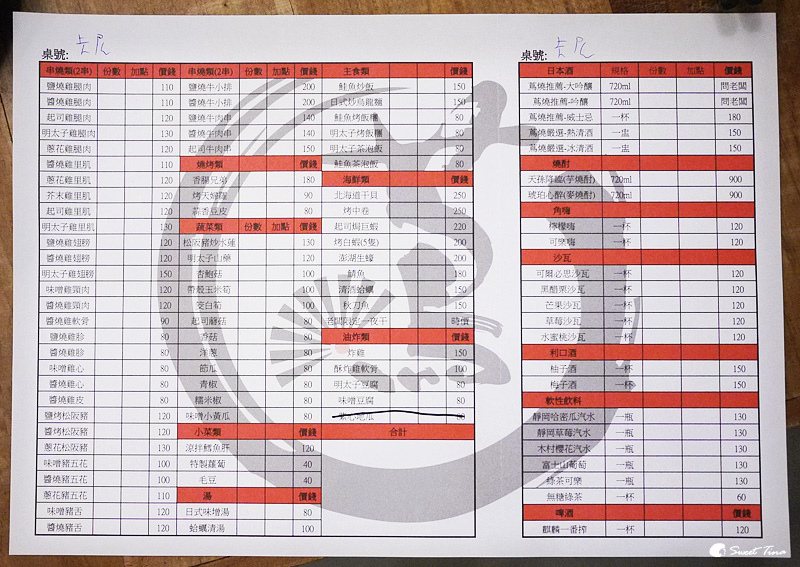 桌號:
串燒類(2串) 份數 加點 價錢
鹽燒雞腿肉 110
醬燒雞腿肉 110
起司雞腿肉 120
明太子雞腿肉 130
蔥花雞腿肉 120
醬燒雞里肌 110
蔥花雞里肌 120
芥末雞里肌 120
起司雞里肌 120
明太子雞里肌 130
鹽燒雞翅膀 120
醬燒雞翅膀 120
明太子雞翅膀 150
味噌雞頸肉 120
醬燒雞頸肉 120
醬燒雞軟骨 90
鹽燒雞胗 80
醬燒雞胗 80
味噌雞心 80
醬燒雞心 80
醬燒雞皮 80
鹽烤松阪豬 120
醬烤松阪豬 120
蔥花松阪豬 130
味噌豬五花 100
醬燒豬五花 100
蔥花豬五花 110
味噌豬舌 120
醬燒豬舌 120
串燒類(2串) 份數 加點 價錢
鹽燒牛小排 200
醬燒牛小排 200
鹽燒牛肉串 140
醬燒牛肉串 140
起司牛肉串 150
燒烤類 價錢
香腸兄弟 180
烤天婦羅 90
蒜香豆皮 80
蔬菜類 份數 加點 價錢
松阪豬炒水蓮 130
明太子山藥 120
杏鮑菇 100
帶殼玉米筍 100
茭白筍 100
起司蘑菇 80
香菇 80
洋蔥 80
節瓜 80
青椒 80
糯米椒 80
味噌小黃瓜 80
小菜類 價錢
涼拌鱈魚肝 120
特製蘿蔔 40
毛豆 40
湯 價錢
日式味噌湯 80
蛤蠣清湯 100
主食類 價錢
鮭魚炒飯 150
日式炒烏龍麵 150
鮭魚烤飯糰 80
明太子烤飯糰 80
明太子茶泡飯 80
鮭魚茶泡飯 80
海鮮類 價錢
北海道干貝 250
烤中卷 250
起司焗巨蝦 220
烤白蝦(5隻) 200
澎湖生蠔 200
鯖魚 180
清酒蛤蠣 150
秋刀魚 150
一夜干 時價
油炸類 價錢
炸雞 150
酥炸雞軟骨 100
明太子豆腐 80
味噌豆腐 80
80
合計
桌號:
日本酒 規格 份數 加點 價錢
蔦燒推薦-大吟釀 720ml 問老闆
蔦燒推薦-吟釀 720ml 問老闆
蔦燒推薦-威士忌 一杯 180
蔦燒嚴選-熱清酒 一盅 150
蔦燒嚴選-冰清酒 一盅 150
燒酎 價錢
天孫降臨(芋燒酎) 720ml 900
琥珀心醉(麥燒酎) 720ml 900
角嗨 價錢
檸檬嗨 一杯 120
可樂嗨 一杯 120
沙瓦 價錢
可爾必思沙瓦 一杯 120
黑醋栗沙瓦 一杯 120
芒果沙瓦 一杯 120
草莓沙瓦 一杯 120
水蜜桃沙瓦 一杯 120
利口酒 價錢
柚子酒 一杯 150
梅子酒 一杯 150
軟性飲料 價錢
靜岡哈密瓜汽水 一瓶 130
靜岡草莓汽水 一瓶 130
木村櫻花汽水 一瓶 130
富士山葡萄 一瓶 130
綠茶可樂 一瓶 130
無糖綠茶 一杯 60
啤酒 價錢
麒麟一番搾 一杯 120
Sweet Tina